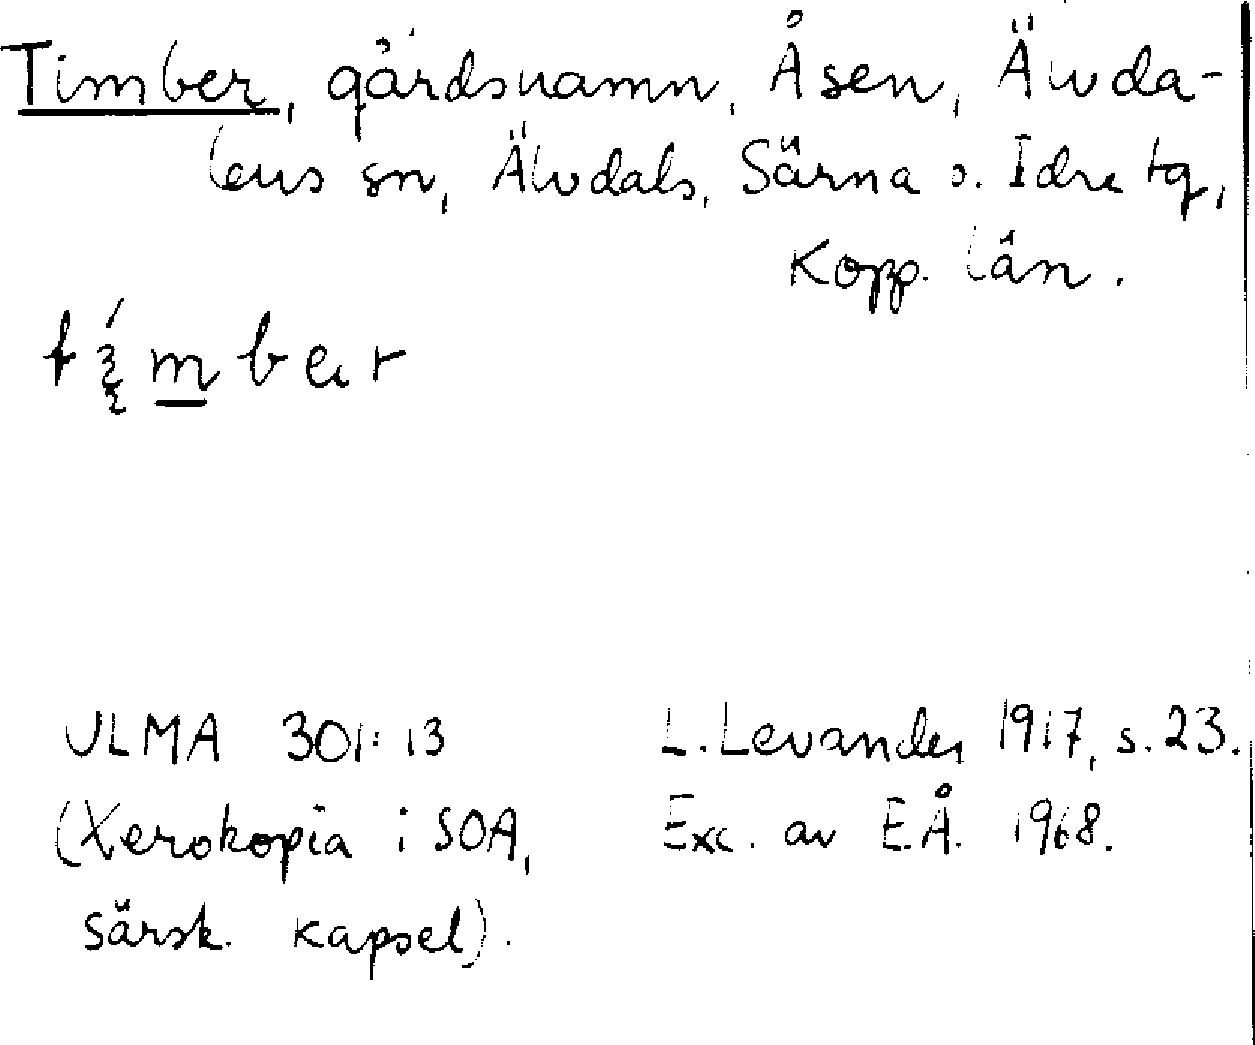 Timber, gårdsnamn, Åsen, Älvda-
lens sn, Älvdals, Särna o. Idre tg,
Kopp. län.
ULMA 301:13 L. Levander 1917, s. 23.
(Xerokopia i SOA, Exc. av E.Å. 1968.
särsk. kapsel).